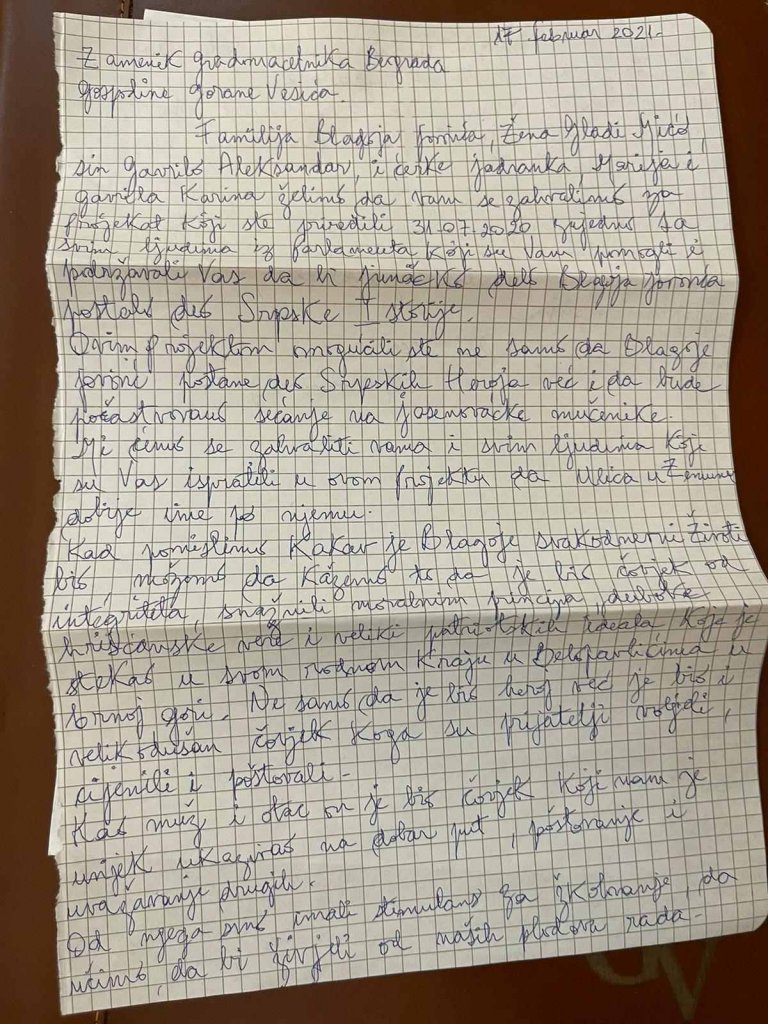 17 februar 2021.
Zamenik gradonačelnika Beograda
gospodine gorane Vesića.
Familija Blagoja Jovovića, Žena Gladi Mićó,
sin gavrilo Aleksandar, i ćerke jadranka, Marija i
gavrila Karina želimo da vam se zahvalimo za
projekat koji ste priredili 31-07-2020 zajedno sa
svim ljudima iz parlamenta koji su Vam pomogli i
podržavali Vas da bi junačko delo Blagoja Jovovića
postalo deo Srpske Istorije.
Ovim projektom omogućili ste ne samo da Blagoje
Jovović postane deo Srpskih Heroja već i da bude
počastvovano sećanje na jasenovačke mučenike.
Mi ćemo se zahvaliti vama i svim ljudima koji
su Vas ispratili u ovom projektu da Ulica u Zemunu
dobije ime po njemu.
Kad pomislimo kakav je Blagoje svakodnevni život
bio, možemo da kažemo to da je bio čovjek od
integriteta, snažnih moralnim principa, duboke
hrišćanske vere i veliki patriotskih ideala koje je
stekao u svom rodnom kraju u Belopavlićima u
Crnoj gori. Ne samo da je bio heroj već je bio i
velikodušan čovjek koga su prijatelji voljeli,
cijenili i poštovali.
Kao muž i otac on je bio čovjek koji nam je
uvijek ukazivao na dobar put, poštovanje i
uvažavanje drugih.
Od njega smo imali stimulans za školovanje, da
učimo, da bi živjeli od naših plodova rada.